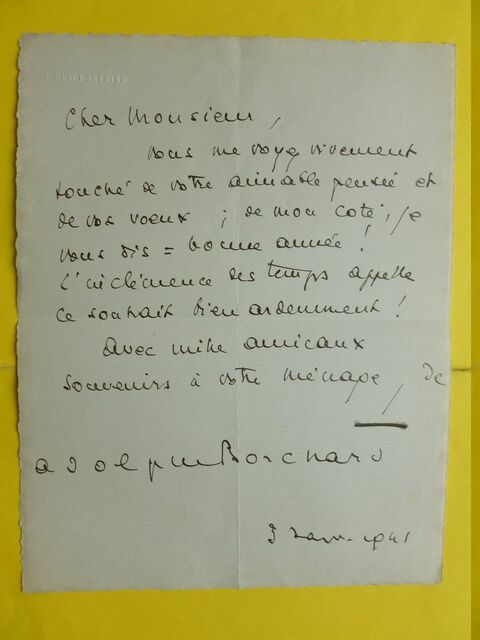 Cher Monsieur,
vous me voyez vivement
touché de votre aimable pensée et
de vos voeux ; de mon coté, je
vous dis = bonne année !
L'inclémence des temps appelle
ce souhait bien ardemment !
Avec mille amicaux
souvenirs à votre ménage, de
Adolphe Borchard
3 Janv. 1941